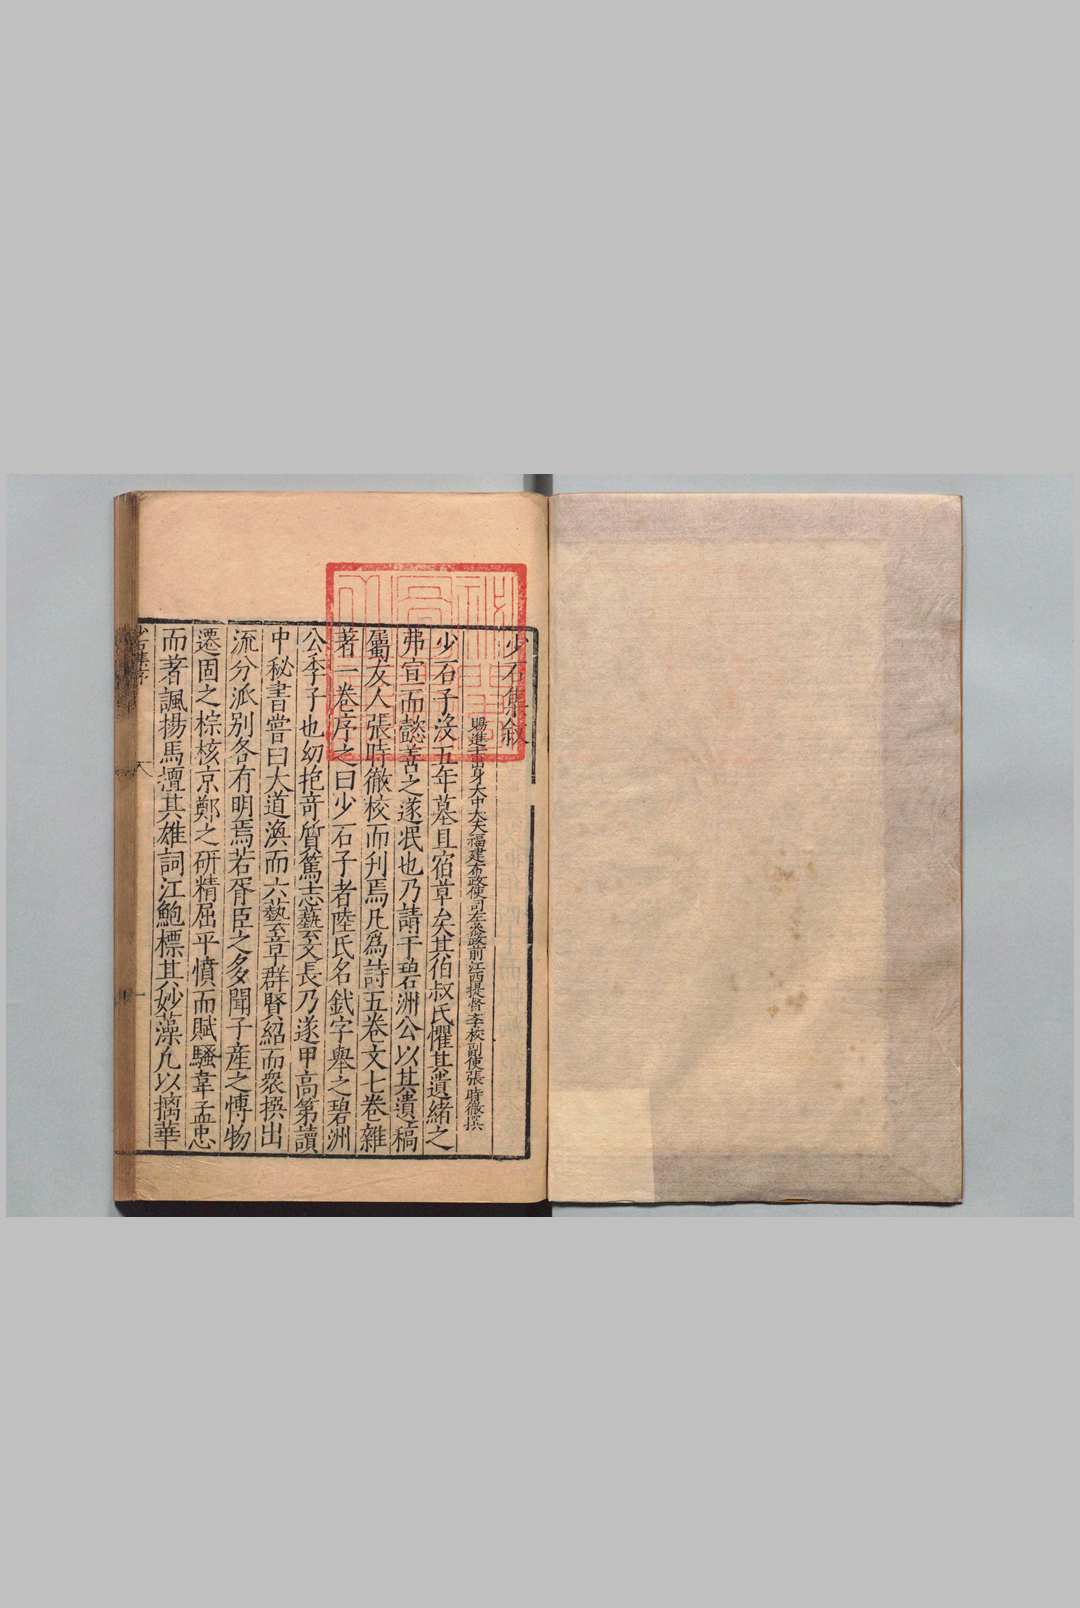 少石集敘
賜進士出身大中大夫福建布政使司左參政前江西提督學校副使張時徹撰
少石子沒五年墓且宿草矣其伯叔氏懼其遺緒之
弗宣而懿善之遂泯也乃請于碧洲公以其遺稿
屬友人張時徹校而刊焉凡為詩五卷文七卷雜
著一卷序之曰少石子者陸氏名釴字舉之碧洲
公季子也幼抱竒質篤志藝文長乃遂甲高第讀
中秘書嘗曰大道渙而六藝章群賢紹而衆撰出
流分派別各有明焉若胥臣之多聞子產之博物
遷固之綜核京鄭之研精屈平憤而賦騷韋孟忠
而著諷揚馬擅其雄詞江鮑標其妙藻凡以摛華
少石集序
一